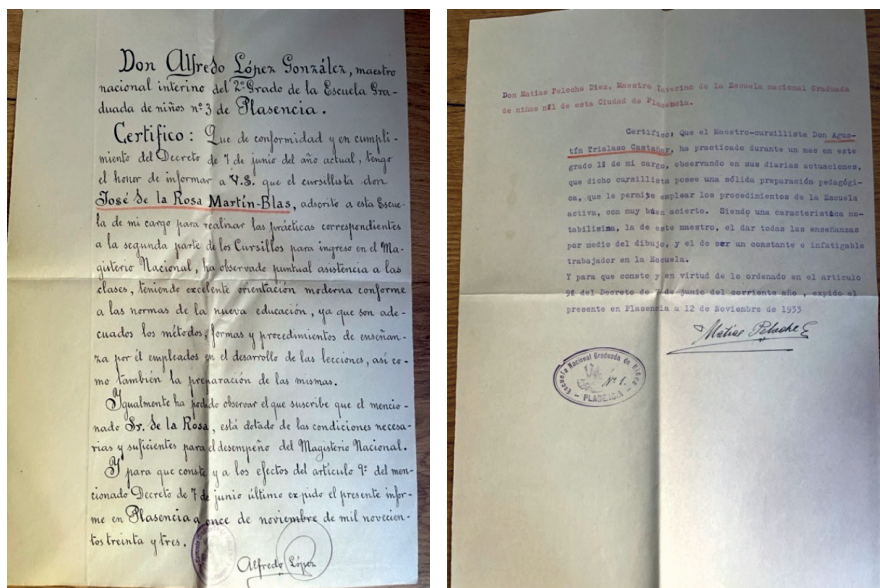 Don Alfredo López González, maestro
nacional interino del 2º Grado de la Escuela Gra-
duada de niños nº 3 de Plasencia.
Certifico: Que de conformidad y en cumpli-
miento del Decreto de 7 de junio del año actual, tengo
el honor de informar a V.S. que el cursillista don
José de la Rosa Martín-Blas, adscrito a esta Escue-
la de mi cargo para realizar las prácticas correspondientes
a la segunda parte de los Cursillos para ingreso en el Ma-
gisterio Nacional, ha observado puntual asistencia a las
clases, teniendo excelente orientación moderna conforme
a las normas de la nueva educación, ya que son ade-
cuados los métodos, formas y procedimientos de enseñan-
za por él empleados en el desarrollo de las lecciones, así co-
mo también la preparación de las mismas.
Igualmente ha podido observar el que suscribe que el mencio-
nado Sr. de la Rosa, está dotado de las condiciones necesa-
rias y suficientes para el desempeño del Magisterio Nacional.
Y para que conste y a los efectos del artículo 9º del men-
cionado Decreto de 7 de junio último expido el presente infor-
me en Plasencia a once de noviembre de mil novecien-
tos treinta y tres.
Alfredo López
Don Matías Peloche Díez, Maestro Interino de la Escuela nacional Graduada
de niños nº1 de esta Ciudad de Plasencia.
Certifico: Que el Maestro-cursillista Don Agus-
tín Trialaso Castañar, ha practicado durante un mes en este
grado 1º de mi cargo, observando en sus diarias actuaciones,
que dicho cursillista posee una sólida preparación pedagógi-
ca, que le permite emplear los procedimientos de la Escuela
activa, con muy buen acierto. Siendo una característica no-
tabilísima, la de este maestro, el dar todas las enseñanzas
por medio del dibujo, y el de ser un constante e infatigable
trabajador en la Escuela.
Y para que conste y en virtud de lo ordenado en el artículo
9º del Decreto de 7 de junio del corriente año, expido el
presente en Plasencia a 12 de Noviembre de 1933
Matías Peloche
Escuela Nacional Graduada de Niños
Nº 1.
PLASENCIA